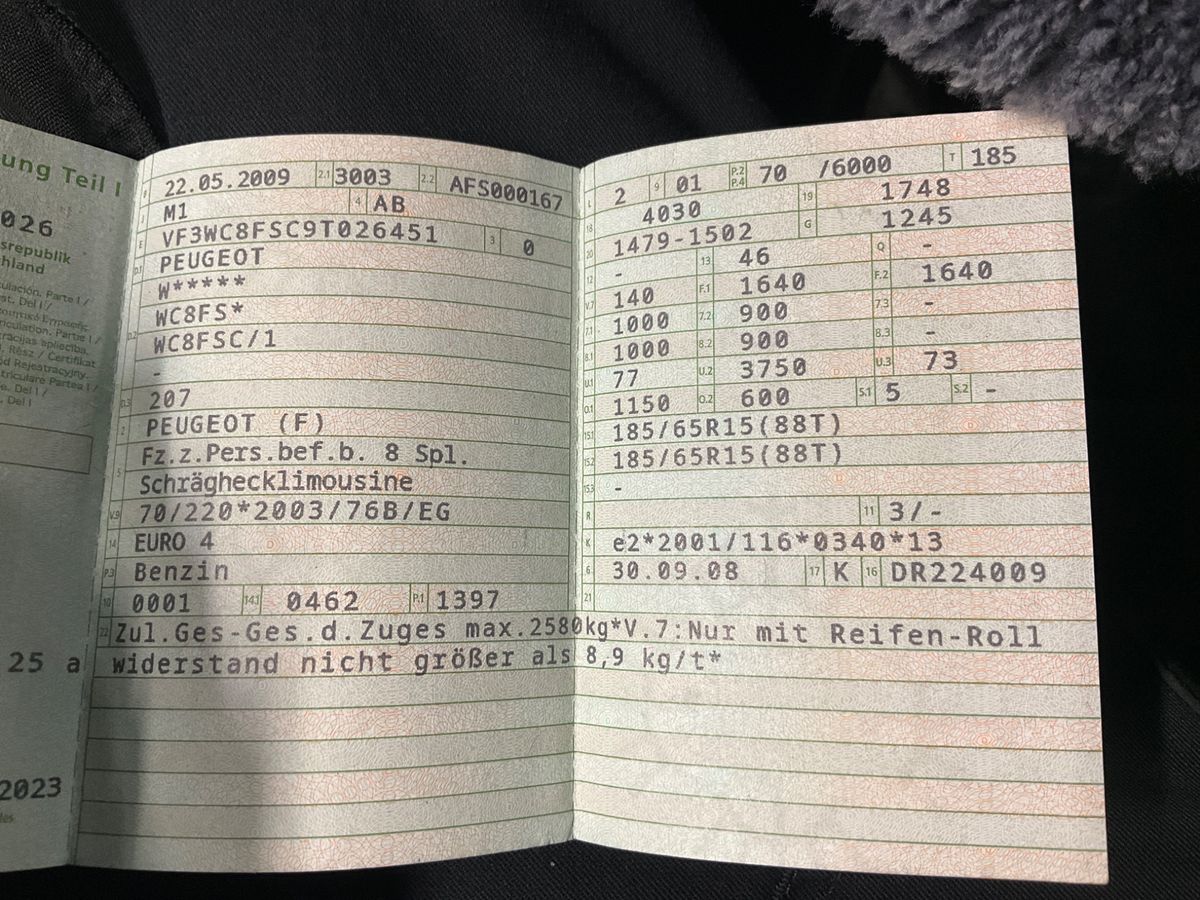 ung Teil I
026
srepublik
hland
22.05.2009 2.1 3003 2.2 AFS000167
J M1 4 AB
E VF3WC8FSC9T026451 3 0
D.1 PEUGEOT
W*****
WC8FS*
D.2 WC8FSC/1
-
D.3 207
2 PEUGEOT (F)
Fz.z.Pers.bef.b. 8 Spl.
5 Schräghecklimousine
V.9 70/220*2003/76B/EG
14 EURO 4
P.3 Benzin
10 0001 14.1 0462 P.1 1397
L 2 9 01 P.2 P.4 70 /6000 T 185
18 4030 19 1748
20 1479-1502 G 1245
12 - 13 46 Q -
V.7 140 F.1 1640 F.2 1640
7.1 1000 7.2 900 7.3 -
8.1 1000 8.2 900 8.3 -
U.1 77 U.2 3750 U.3 73
O.1 1150 O.2 600 S.1 5 S.2 -
15.1 185/65R15(88T)
15.2 185/65R15(88T)
15.3 -
R 11 3/-
K e2*2001/116*0340*13
6 30.09.08 17 K 16 DR224009
21
22 Zul.Ges-Ges.d.Zuges max.2580kg*V.7:Nur mit Reifen-Roll
widerstand nicht größer als 8,9 kg/t*
25 a
2023